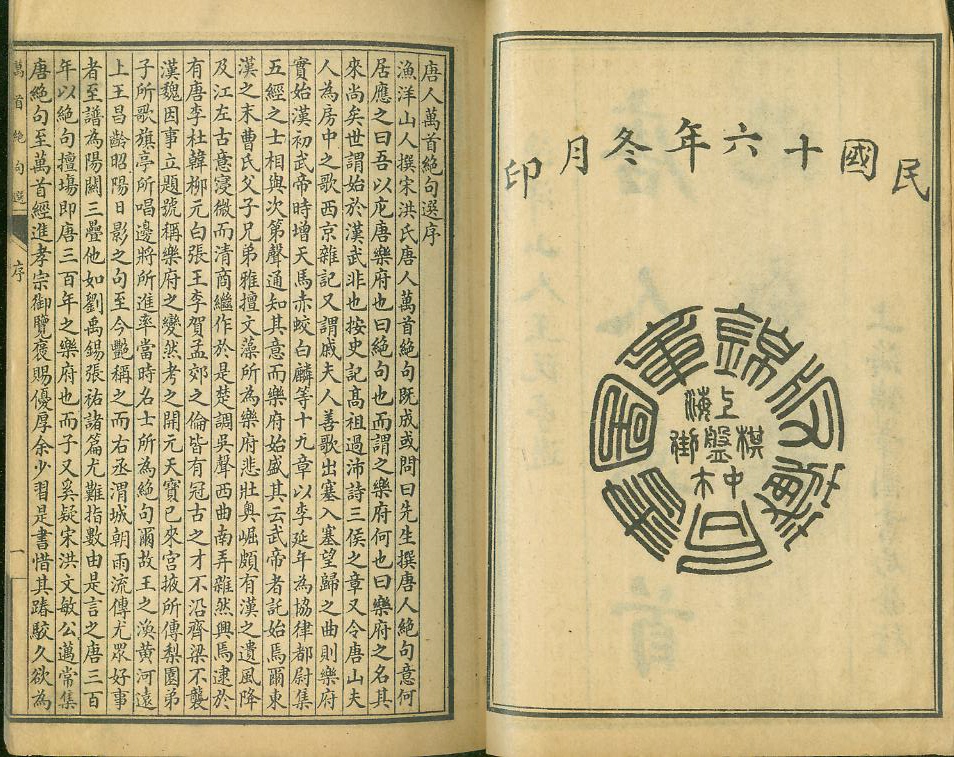 民國十六年冬月印
錦章圖書局藏版
上海
棋盤街
中市
唐人萬首絕句選序
漁洋山人撰宋洪氏唐人萬首絕句既成或問曰先生撰唐人絕句意何
居應之曰吾以庀唐樂府也曰絕句也而謂之樂府何也曰樂府之名其
來尚矣世謂始於漢武非也按史記高祖過沛詩三侯之章又令唐山夫
人為房中之歌西京雜記又謂戚夫人善歌出塞入塞望歸之曲則樂府
實始漢初武帝時增天馬赤蛟白麟等十九章以李延年為協律都尉集
五經之士相與次第聲通知其意而樂府始盛其云武帝者託始焉爾東
漢之末曹氏父子兄弟雅擅文藻所為樂府悲壯奧崛頗有漢之遺風降
及江左古意寖微而清商繼作於是楚調吳聲西曲南弄雜然興焉逮於
有唐李杜韓柳元白張王李賀孟郊之倫皆有冠古之才不沿齊梁不襲
漢魏因事立題號稱樂府之變然考之開元天寶已來宮掖所傳梨園弟
子所歌旗亭所唱邊將所進率當時名士所為絕句爾故王之渙黃河遠
上王昌齡昭陽日影之句至今艷稱之而右丞渭城朝雨流傳尤眾好事
者至譜為陽關三疊他如劉禹錫張祐諸篇尤難指數由是言之唐三百
年以絕句擅塲即唐三百年之樂府也而子又奚疑宋洪文敏公邁常集
唐絕句至萬首經進孝宗御覽襃賜優厚余少習是書惜其踳駁久欲為
萬首絕句選
序
一